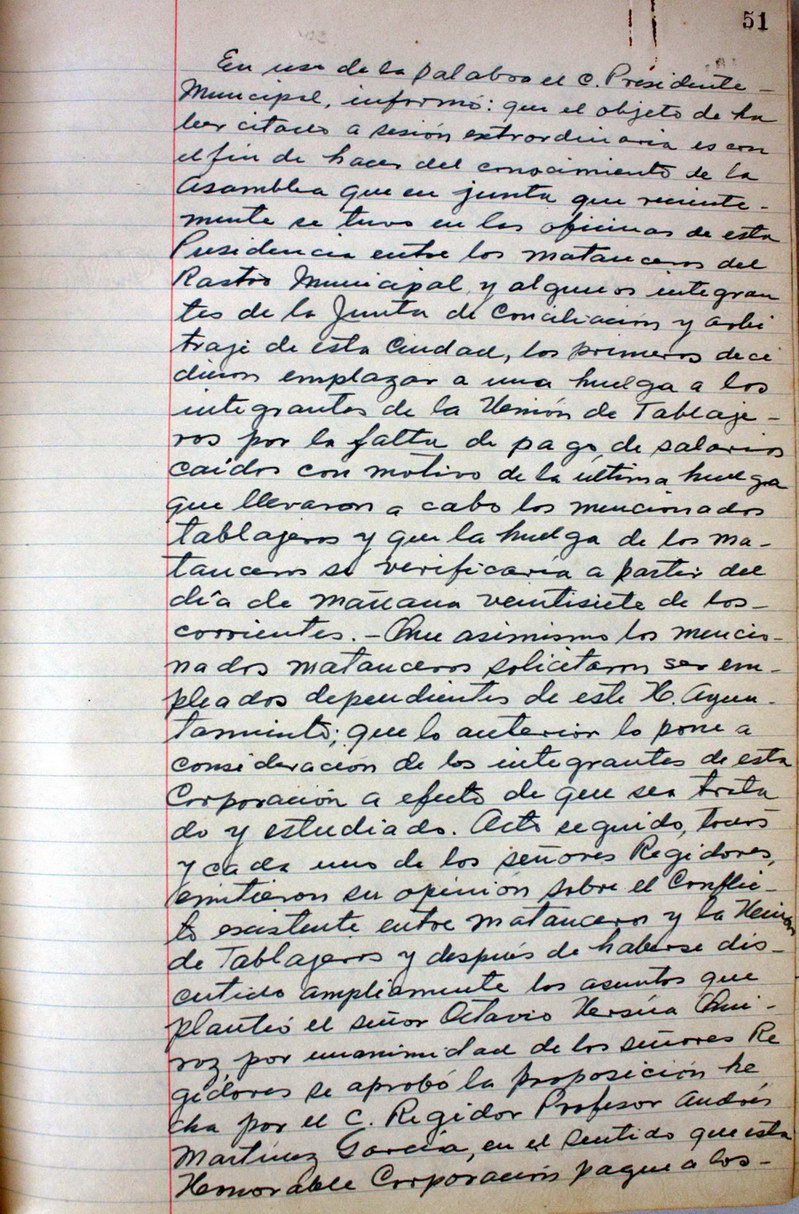 51
En uso de la palabra el C. Presidente -
Municipal, informó: que el objeto de ha
ber citado a sesión extrordinaria es con
el fin de hacer del conocimiento de la
Asamblea que en junta que reciente-
mente se tuvo en las oficinas de esta
Presidencia entre los matanceros del
Rastro Municipal y algunos integran
tes de la Junta de Conciliación y Arbi
traje de esta Ciudad, los primeros deci
dieron emplazar a una huelga a los
integrantes de la Unión de Tablaje-
ros por la falta de pago de salarios
caídos con motivo de la última huelga
que llevaron a cabo los mencionados
tablajeros y que la huelga de los ma-
tanceros se verificaría a partir del
día de mañana veintisiete de los-
corrientes.- Que asimismo los mencio-
nados matanceros solicitaron ser em-
pleados dependientes de este H. Ayun-
tamiento; que lo anterior lo pone a
consideración de los integrantes de esta
Corporación a efecto de que sea trata
do y estudiado. Acto seguido, todos
y cada uno de los señores Regidores,
emitieron su opinión sobre el Conflic-
to existente entre matanceros y la Unión
de Tablajeros y después de haberse dis-
cutido ampliamente los asuntos que
planteó el señor Octavio Qui-
roz, por unanimidad de los señores Re
gidores se aprobó la proposición he
cha por el C. Regidor Profesor Andrés
Martínez García, en el sentido que esta
Honorable Corporación pague a los-